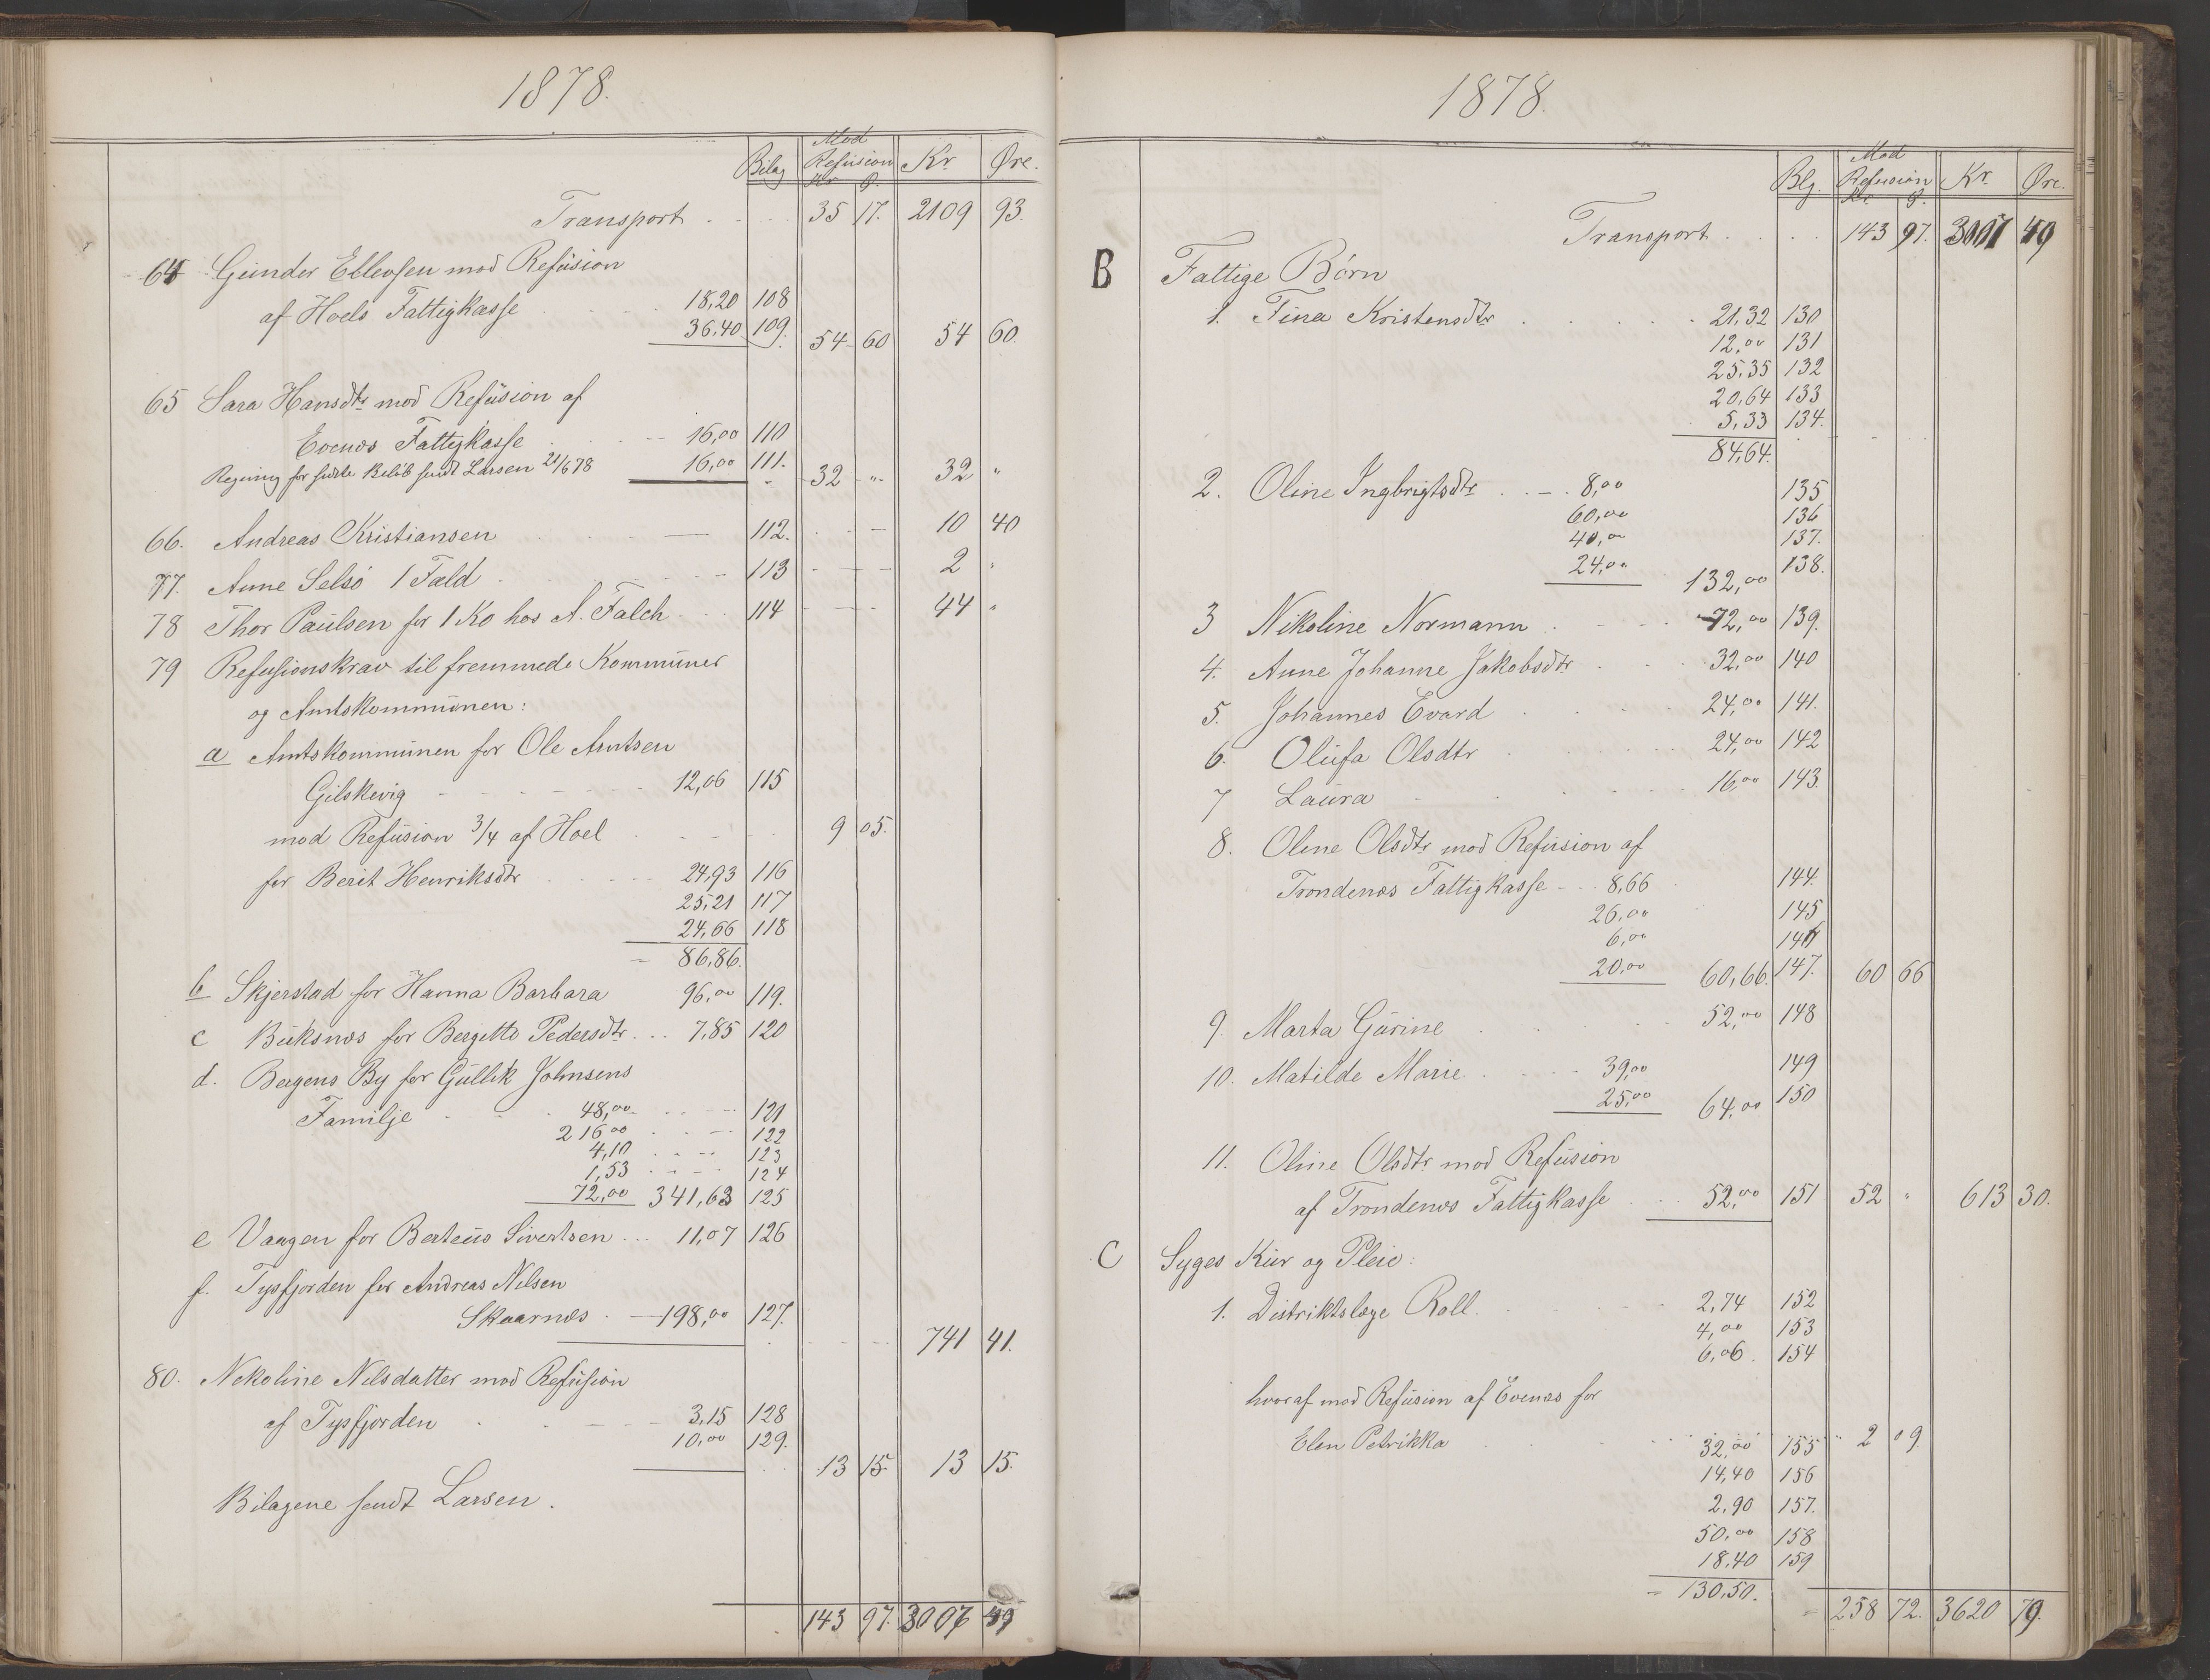 1878.
Bilag Mod Refusion Kr. Ø. Kr. Øre.
Transport 35 17. 2109 93.
64 Gunder Ellevsen mod Refusion
af Hoels Fattigkasse 18,20 108
36,40 109. 54 60 54 60.
65 Sara Hansdtr mod Refusion af
Evenæs Fattigkasse 16,00 110
Regning for sidste Beløb sendt Larsen 21/6 78 16,00 111. 32 " 32 "
66. Andreas Kristiansen 112. 10 40
77. Anne Selsø 1 Fald 113 2 "
78 Thor Paulsen for 1 Ko hos A. Falch 114 44 "
79 Refusionskrav til fremmede Kommuner
og Amtskommunen:
a Amtskommunen for Ole Arntsen
Gilskevig 12,06 115
mod Refusion 3/4 af Hoel 9 05.
for Berit Henriksdtr 24,93 116
25,21 117
24,66 118
86,86.
b Skjerstad for Hanna Barbara 96,00 119.
c Buksnæs for Bergitte Pedersdtr 7,85 120
d. Bergens By for Gullik Johnsens
Familje 48,00 121
216,00 122
4,10 123
1,53 124
72,00 341,63 125
e Vaagen for Berteus Sivertsen 11,07 126
f. Tysfjorden for Andreas Nilsen
Skaarnæs 198,00 127.
741 41.
80. Nikoline Nilsdatter mod Refusion
af Tysfjorden 3,15 128
10,00 129.
13 15. 13 15.
Bilagene sendt Larsen.
143 97. 3007 49
1878.
Blg. Mod Refusion Kr. Ø. Kr. Øre.
Transport 143 97. 3007 49
B Fattige Børn
1. Fina Kristensdtr 21,32 130
12,00 131
25,35 132
20,64 133
5,33 134.
84,64.
2. Oline Ingbrigtsdtr 8,00 135
60,00 136
40,00 137.
24,00 138.
132,00
3 Nikoline Normann 72,00 139.
4. Anne Johanne Jakobsdtr 32,00 140
5. Johannes Evard 24,00 141.
6. Olufa Olsdtr 24,00 142
7 Laura 16,00 143.
8. Oline Olsdtr mod Refusion af
Trondenæs Fattigkasse 8,66 144.
26,00 145
6,00 146
20,00 60,66. 147. 60 66
9. Marta Gurine 52,00 148
10. Matilde Marie 39,00 149
25,00 64,00 150
11. Oline Olsdtr mod Refusion
af Trondenæs Fattigkasse 52,00 151 52 " 613 30.
C Syges Kur og Pleie:
1. Distriktslæge Roll. 2,74 152
4,00 153
6,06 154
hvoraf mod Refusion af Evenæs for
Elen Petrikka 32,00 155 2 09.
14,40 156
2,90 157.
50,00 158
18,40 159
130,50.
258 72. 3620 79.